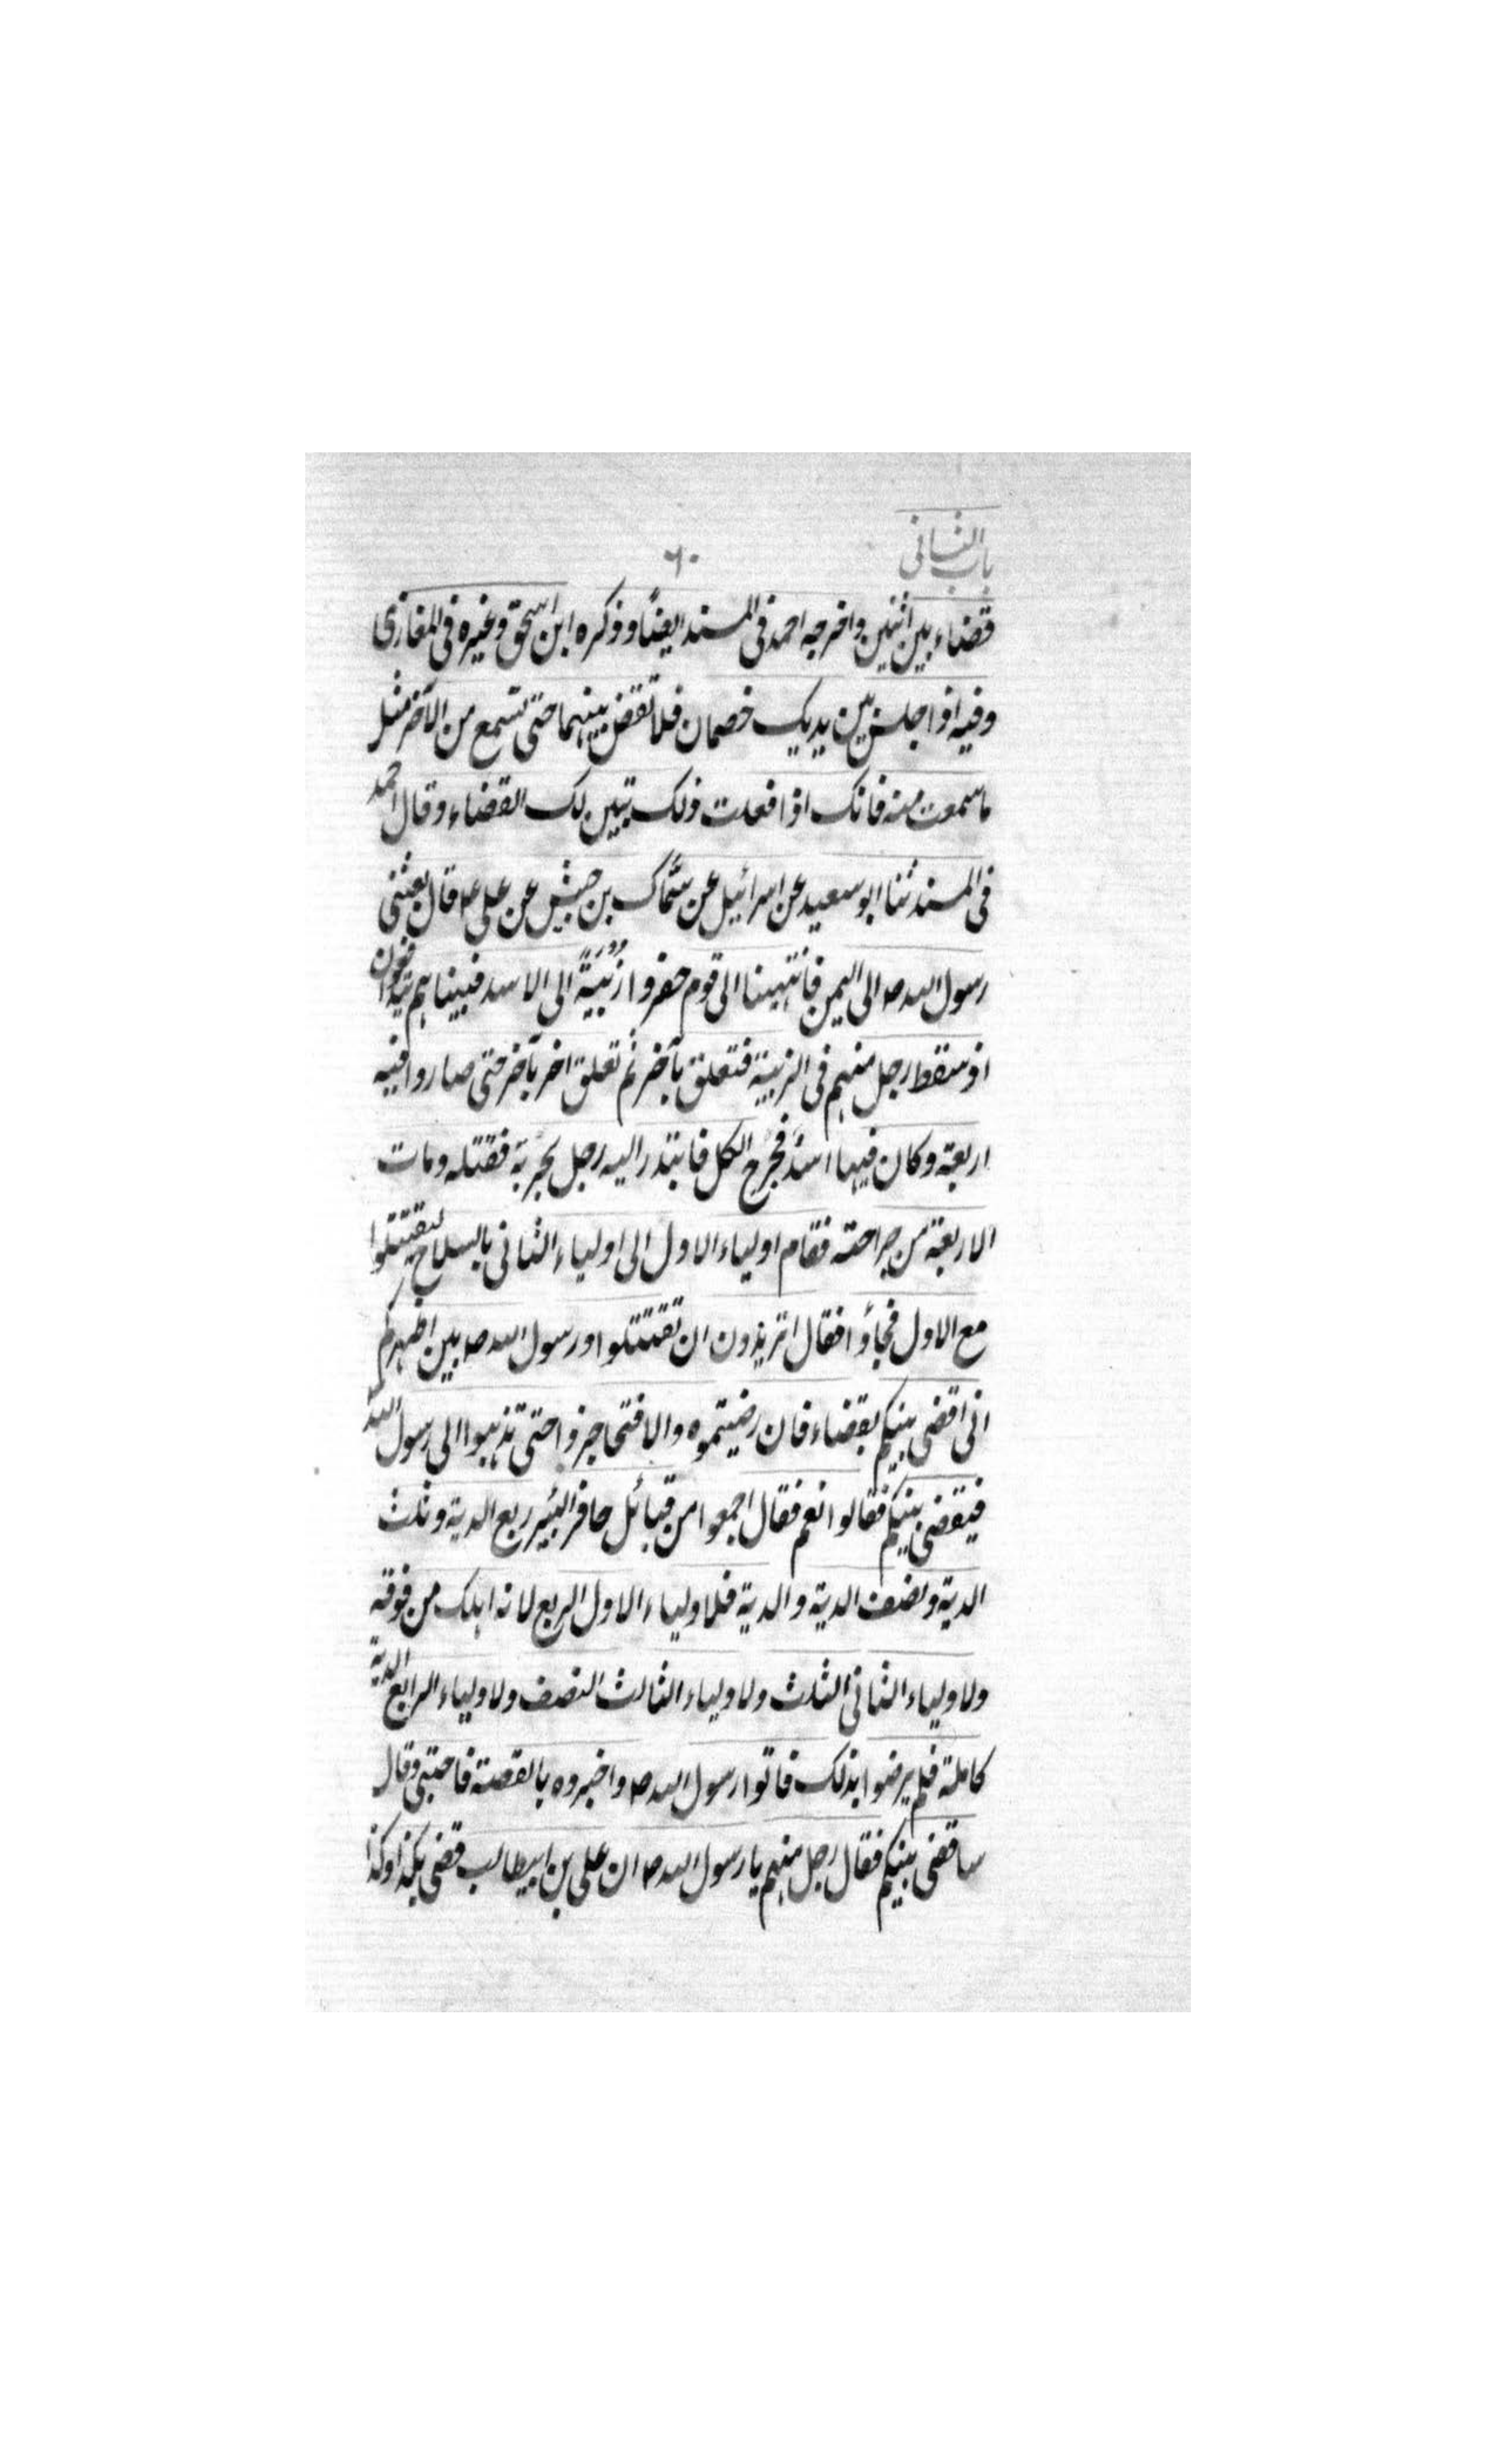 باب الثانى
٦٠
قضاء بين اثنين واخرجه احمد فى المسند ايضًا وذكره ابن اسحق وغيره فى المغازى
وفيه اذا جلس بين يديك خصمان فلا تقض بينهما حتى تسمع من الآخر مثل
ما سمعت منه فانك اذا فعلت ذلك تبين لك القضاء وقال احمد
فى المسند ثنا ابو سعيد عن اسرائيل عن سماك بن حبيش عن على ع قال بعثنى
رسول الله ص الى اليمن فانتهينا الى قوم حفروا زُبْيَةً الى الاسد فبينا هم يتدافعون
اذ سقط رجل منهم فى الزبية فتعلق بآخر ثم تعلق اخر بآخر حتى صاروا فيه
اربعة وكان فيها اسدٌ فجَرَح الكل فابتدر اليه رجل بحربة فقتله ومات
الاربعة من جراحته فقام اولياء الاول الى اولياء الثانى بالسلاح ليقتتلوا
مع الاول فجاؤا فقال اتريدون ان تقتتلوا ورسول الله ص بين اظهركم
انى اقضى بينكم بقضاء فان رضيتموه والا فتحاجزوا حتى تذهبوا الى رسول الله
فيقضى بينكم فقالوا نعم فقال اجمعوا من قبائل حافر البئير ربع الدية وثلث
الدية ونصف الدية والدية فلاولياء الاول الربع لانه اهلك من فوقه
ولاولياء الثانى الثلث ولاولياء الثالث النصف ولاولياء الرابع الدية
كاملة فلم يرضوا بذلك فاتوا رسول الله ص واخبروه بالقصة فاحتبى وقال
ساقضى بينكم فقال رجل منهم يا رسول الله ص ان على بن ابيطالب قضى بكذا وكذا